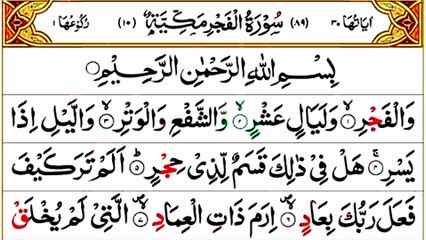 اٰیاتھا ٣٠ (٨٩) سُوْرَةُ الْفَجْرِ مَكِّيَّةٌ (١٠) رُكُوْعُهَا ١
بِسْمِ اللّٰهِ الرَّحْمٰنِ الرَّحِيْمِ
وَالْفَجْرِۙ‏ ۝١ وَلَيَالٍ عَشْرٍۙ‏ ۝٢ وَّالشَّفْعِ وَالْوَتْرِۙ‏ ۝٣ وَالَّيْلِ اِذَا
يَسْرِۚ‏ ۝٤ هَلْ فِىْ ذٰلِكَ قَسَمٌ لِّذِىْ حِجْرٍؕ‏ ۝٥ اَلَمْ تَرَ كَيْفَ
فَعَلَ رَبُّكَ بِعَادٍۙ‏ ۝٦ اِرَمَ ذَاتِ الْعِمَادِۙ‏ ۝٧ الَّتِىْ لَمْ يُخْلَقْ